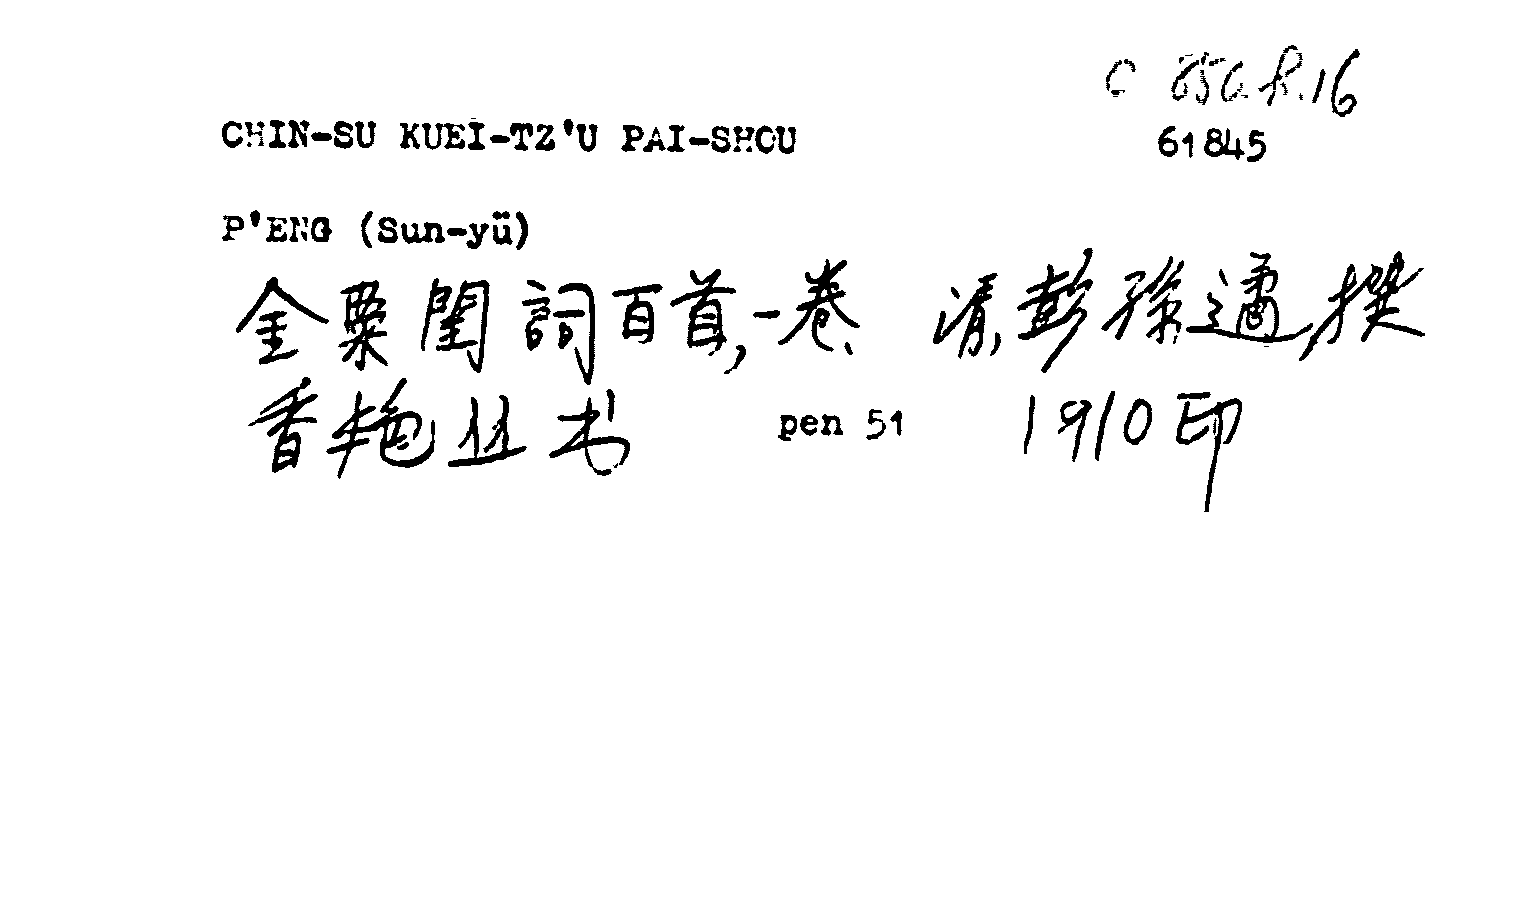 C 856.R.16
CHIN-SU KUEI-TZ'U PAI-SHOU
61845
P'ENG (Sun-yü)
金粟閨詞百首,一卷、 清,彭孫遹撰
香艳丛书 pen 51 1910印